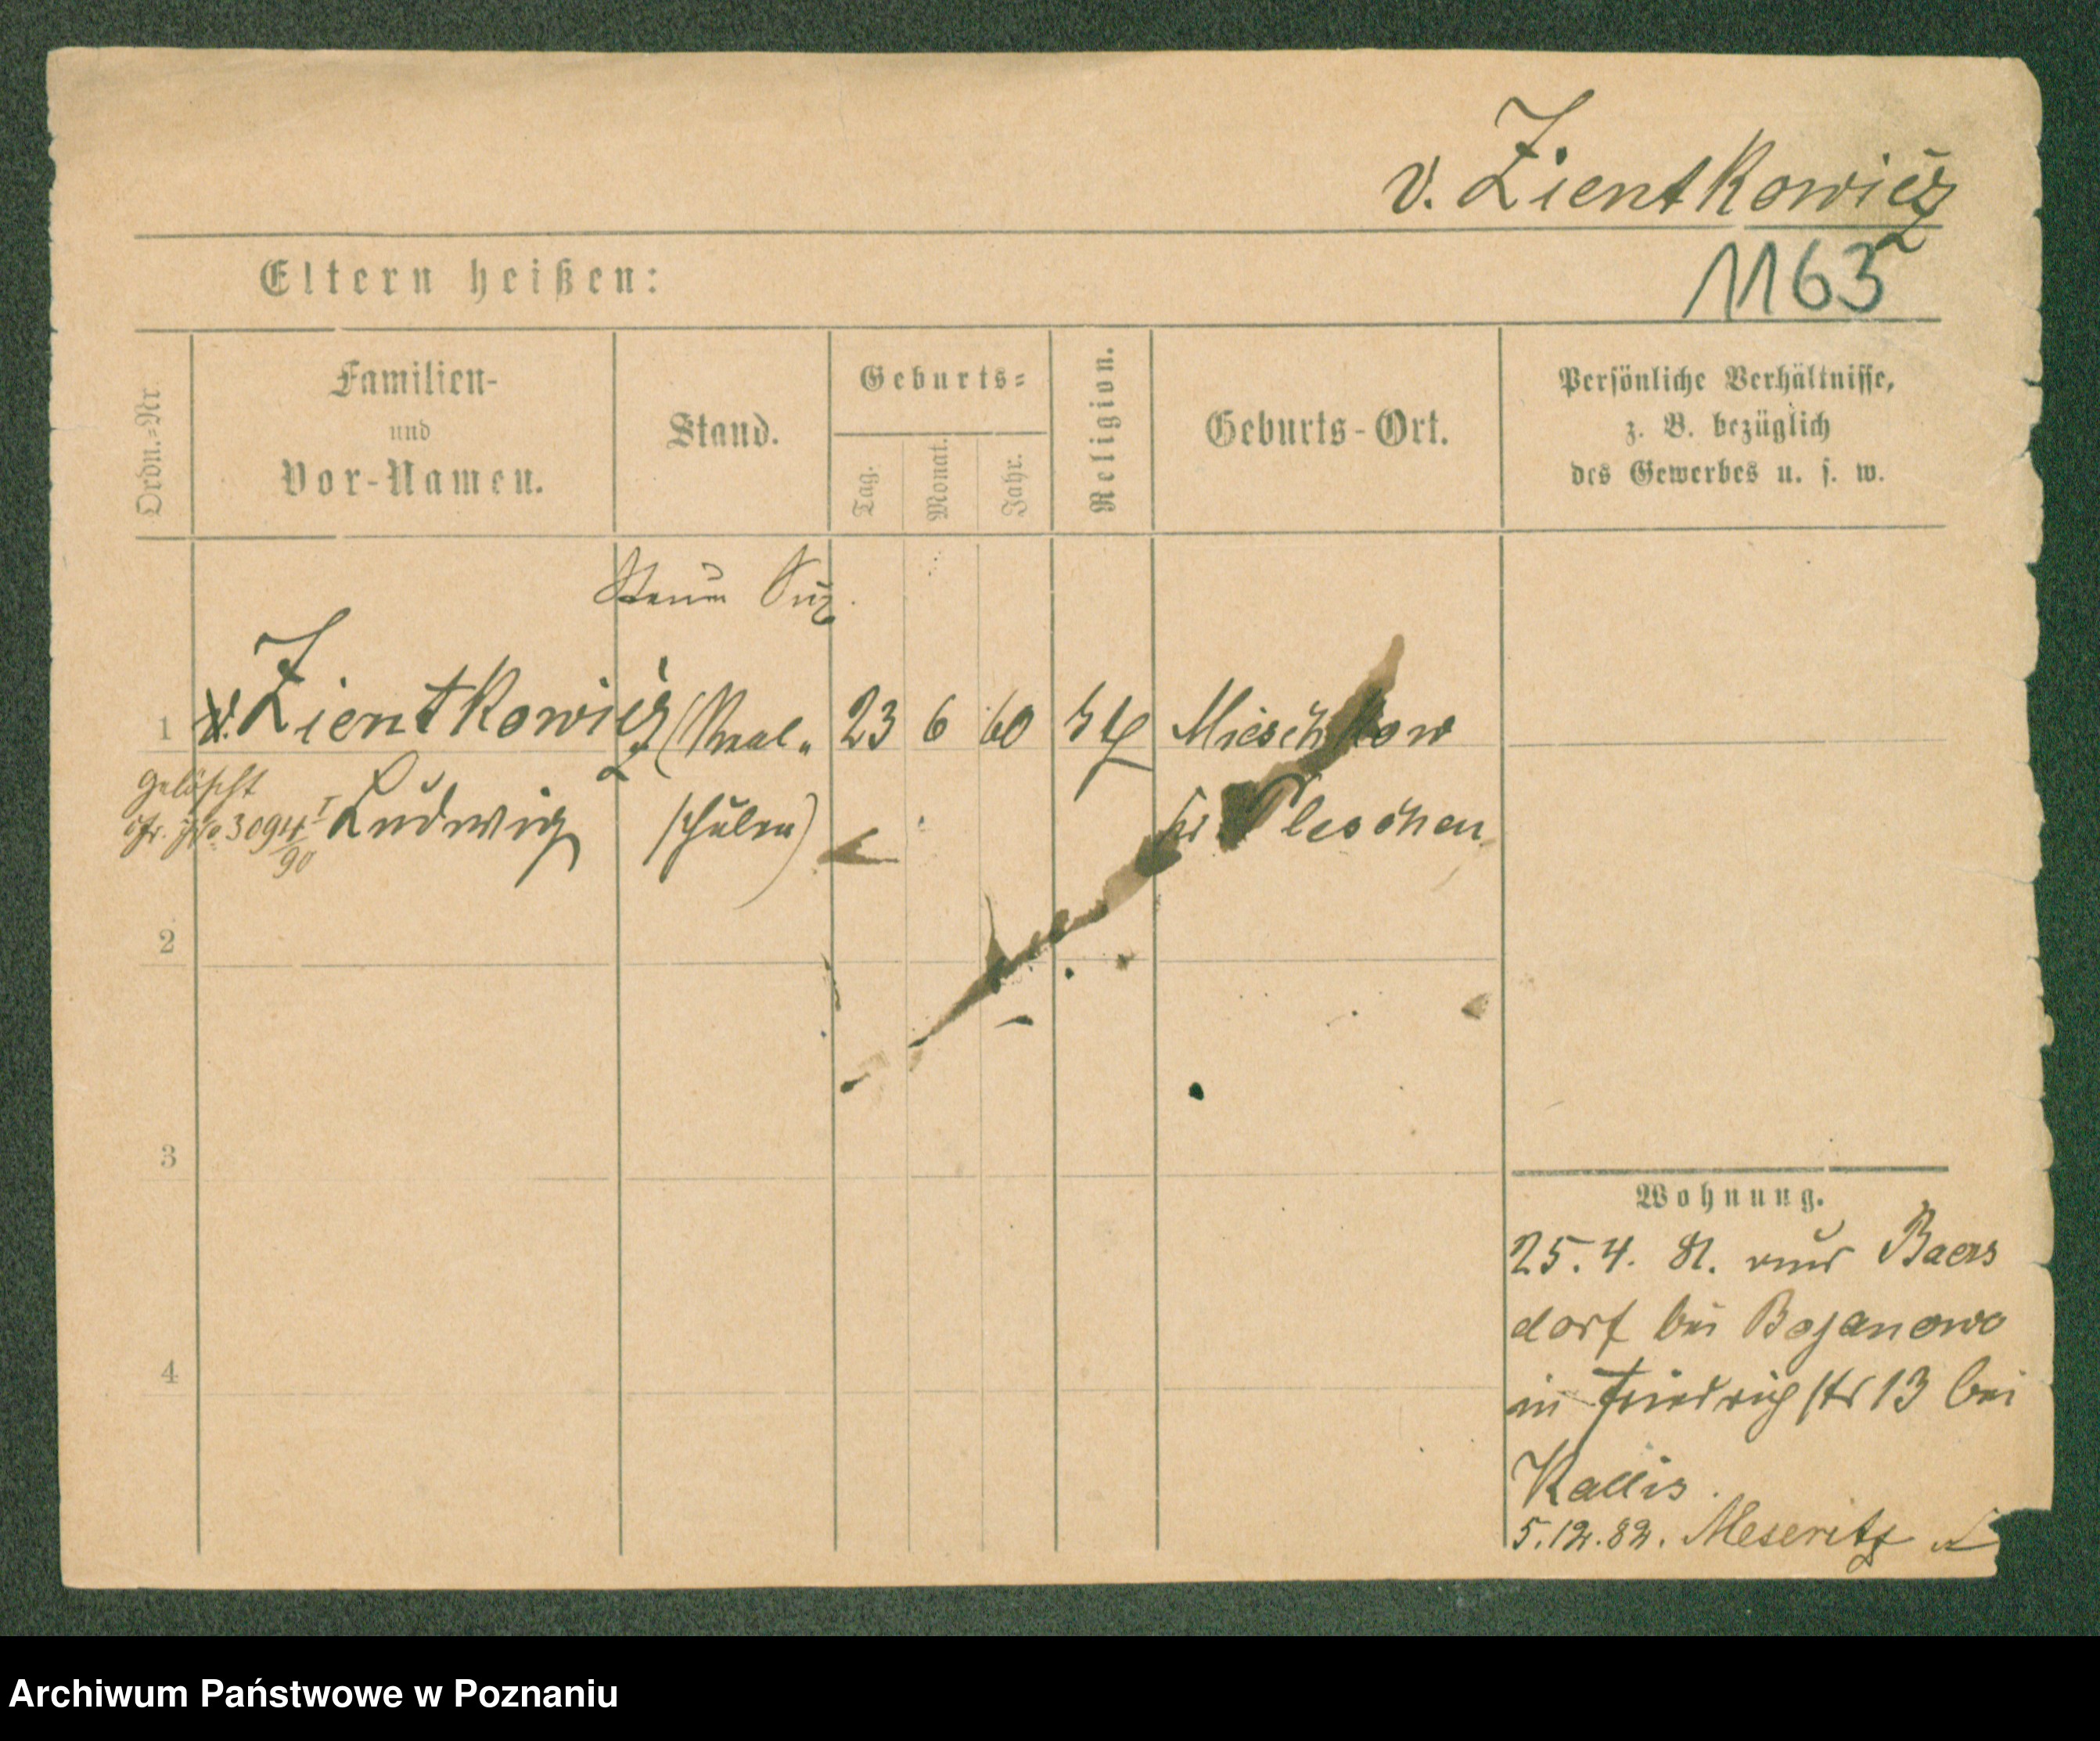 v. Zientkowicz
1163
Eltern heißen:
Ordn.-Nr
Familien-
und
Vor-Namen.
Stand.
Geburts-
Tag.
Monat.
Jahr.
Religion.
Geburts-Ort.
Persönliche Verhältnisse,
z. B. bezüglich
des Gewerbes u. s. w.
1 v. Zientkowicz (Real- 23 6 60 Mieschkow
gelöscht
3094 I Ludwig schüler) Kr Pleschen
90
2
3
4
Wohnung.
25.4.81. Baers
dorf bei Bojanowo
in Friedrichstr 13 bei
Kallis.
5.12.82. Meseritz
Archiwum Państwowe w Poznaniu